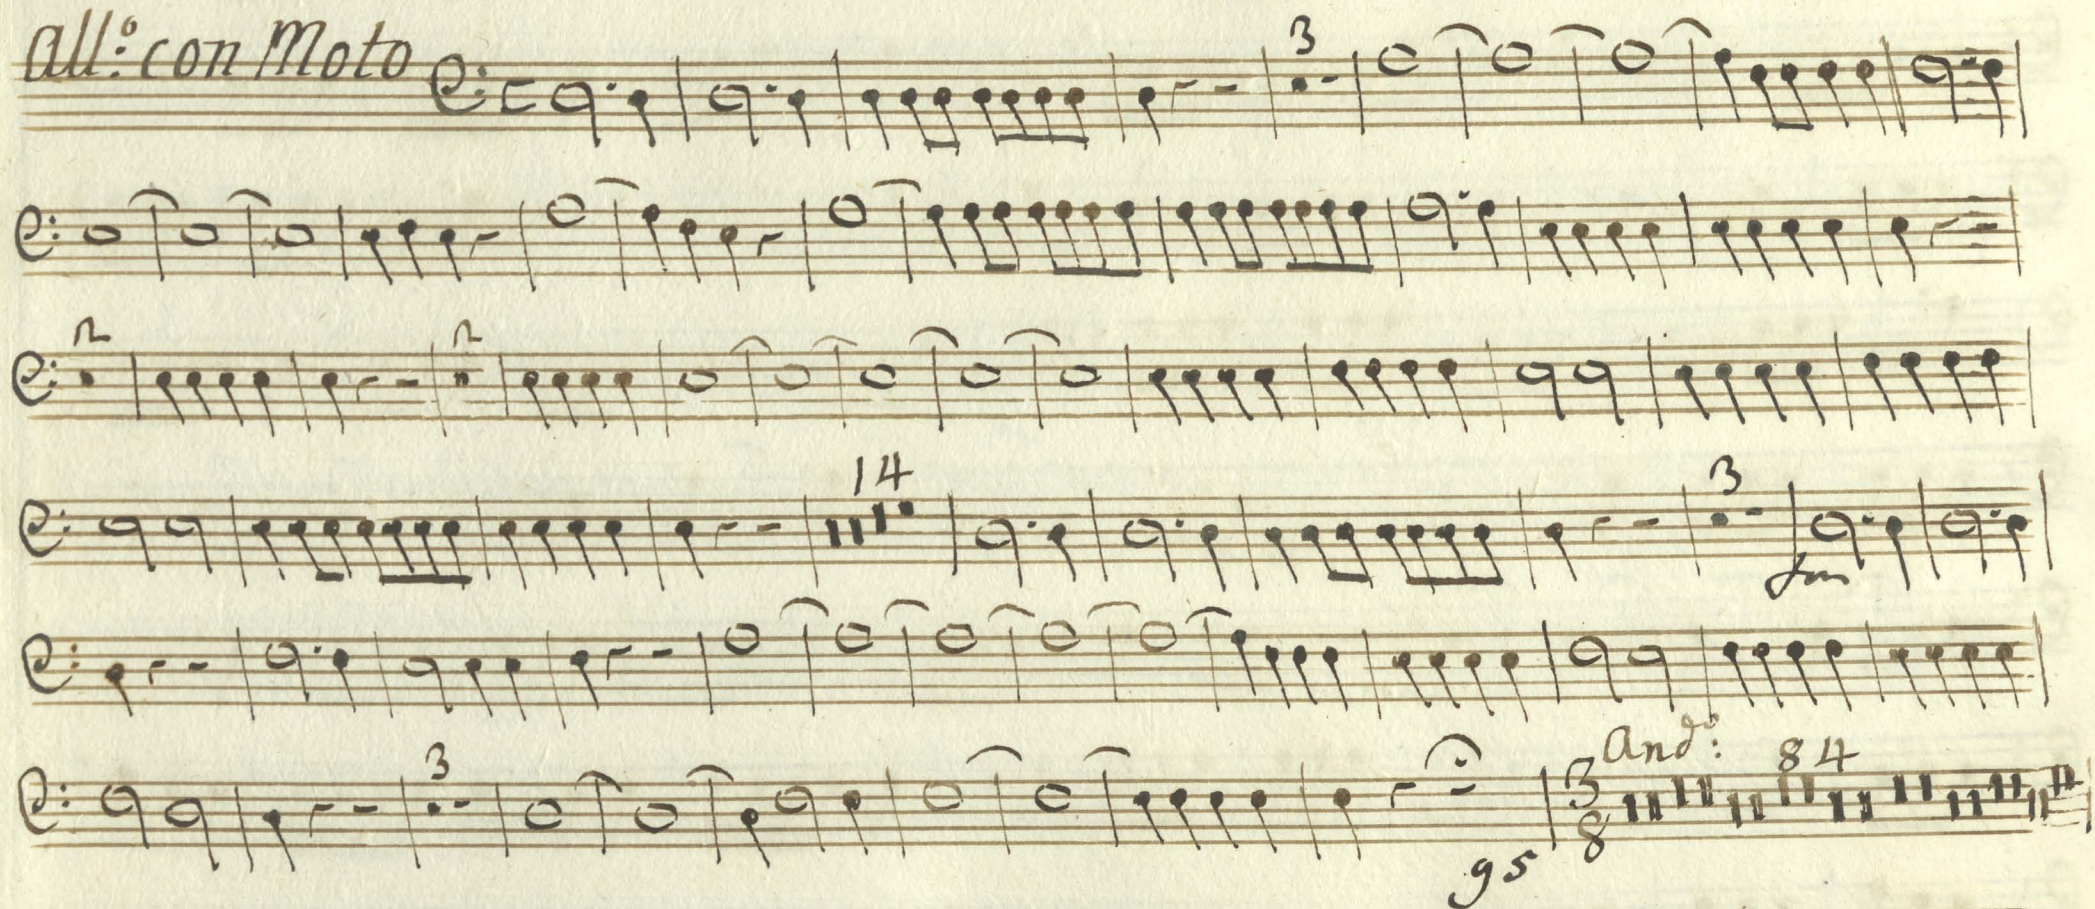 All:º con Moto
3
2 2
14 3
fm
3 And:º 84
3
8
95